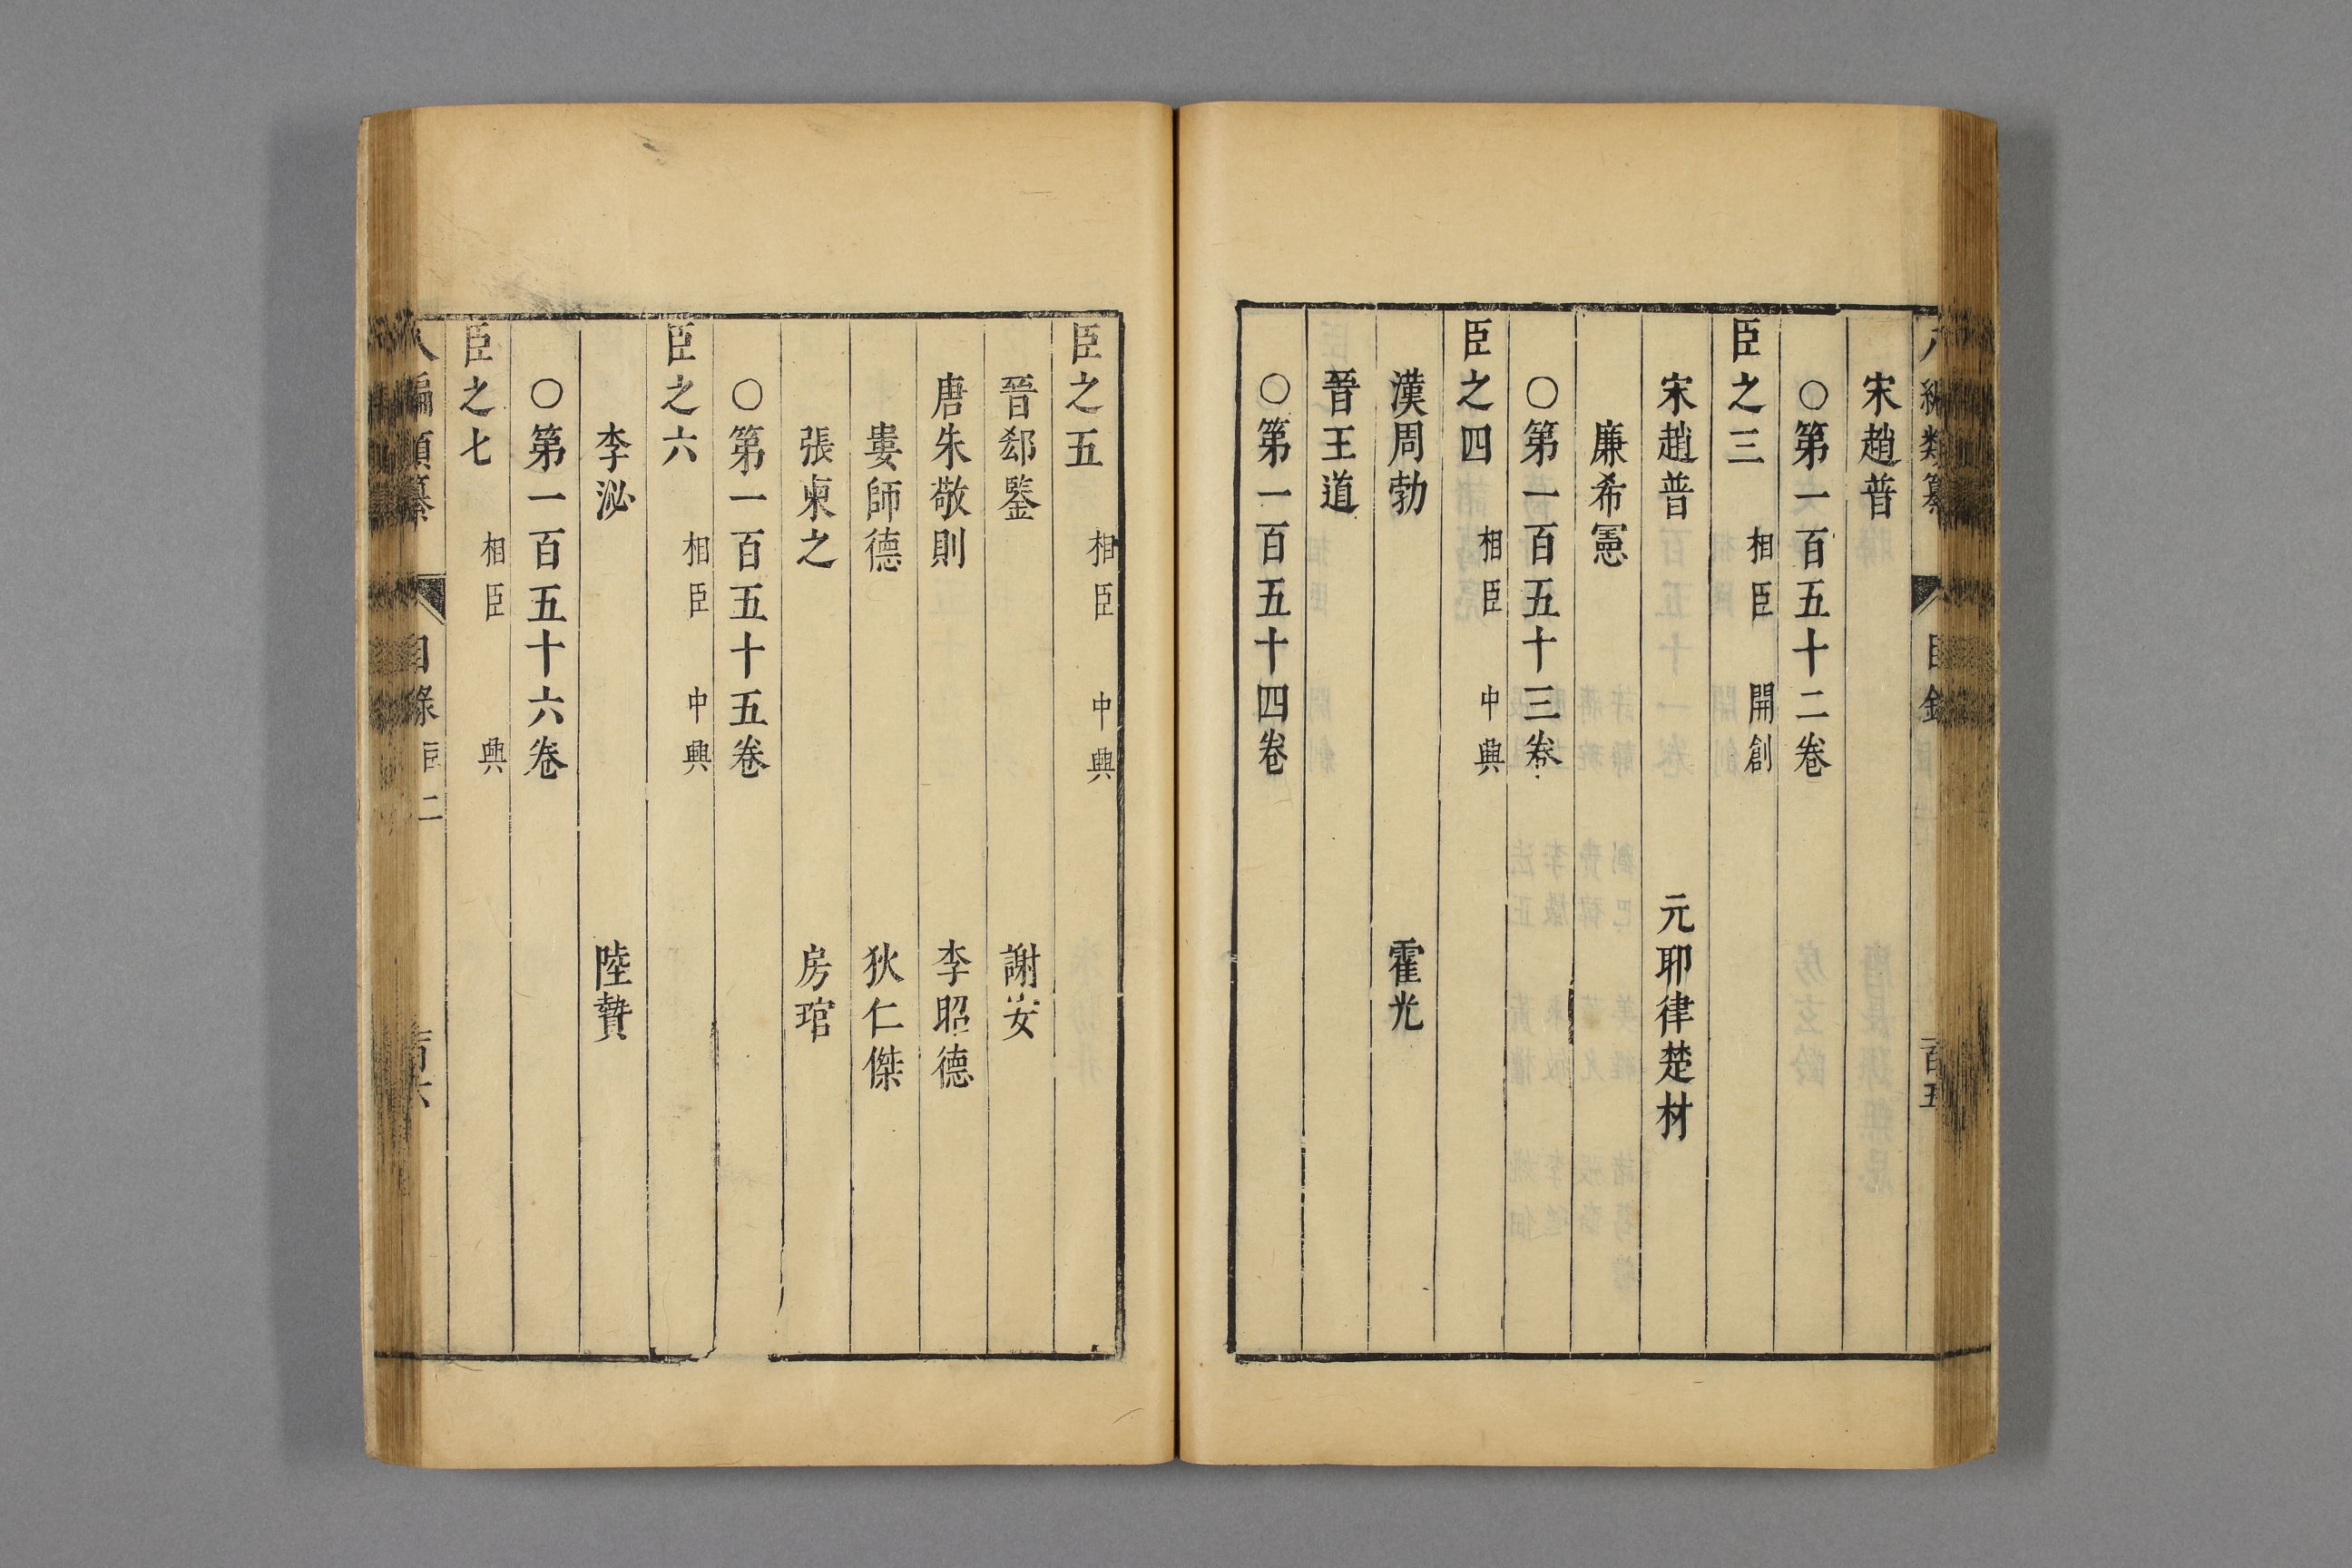 宋趙普
○第一百五十二卷
臣之三 相臣 開創
宋趙普 元耶律楚材
廉希憲
○第一百五十三卷
臣之四 相臣 中興
漢周勃 霍光
晉王道
○第一百五十四卷
臣之五 相臣 中興
晉郄鑒 謝安
唐朱敬則 李昭德
婁師德 狄仁傑
張柬之 房琯
○第一百五十五卷
臣之六 相臣 中興
李泌 陸贄
○第一百五十六卷
臣之七 相臣 興